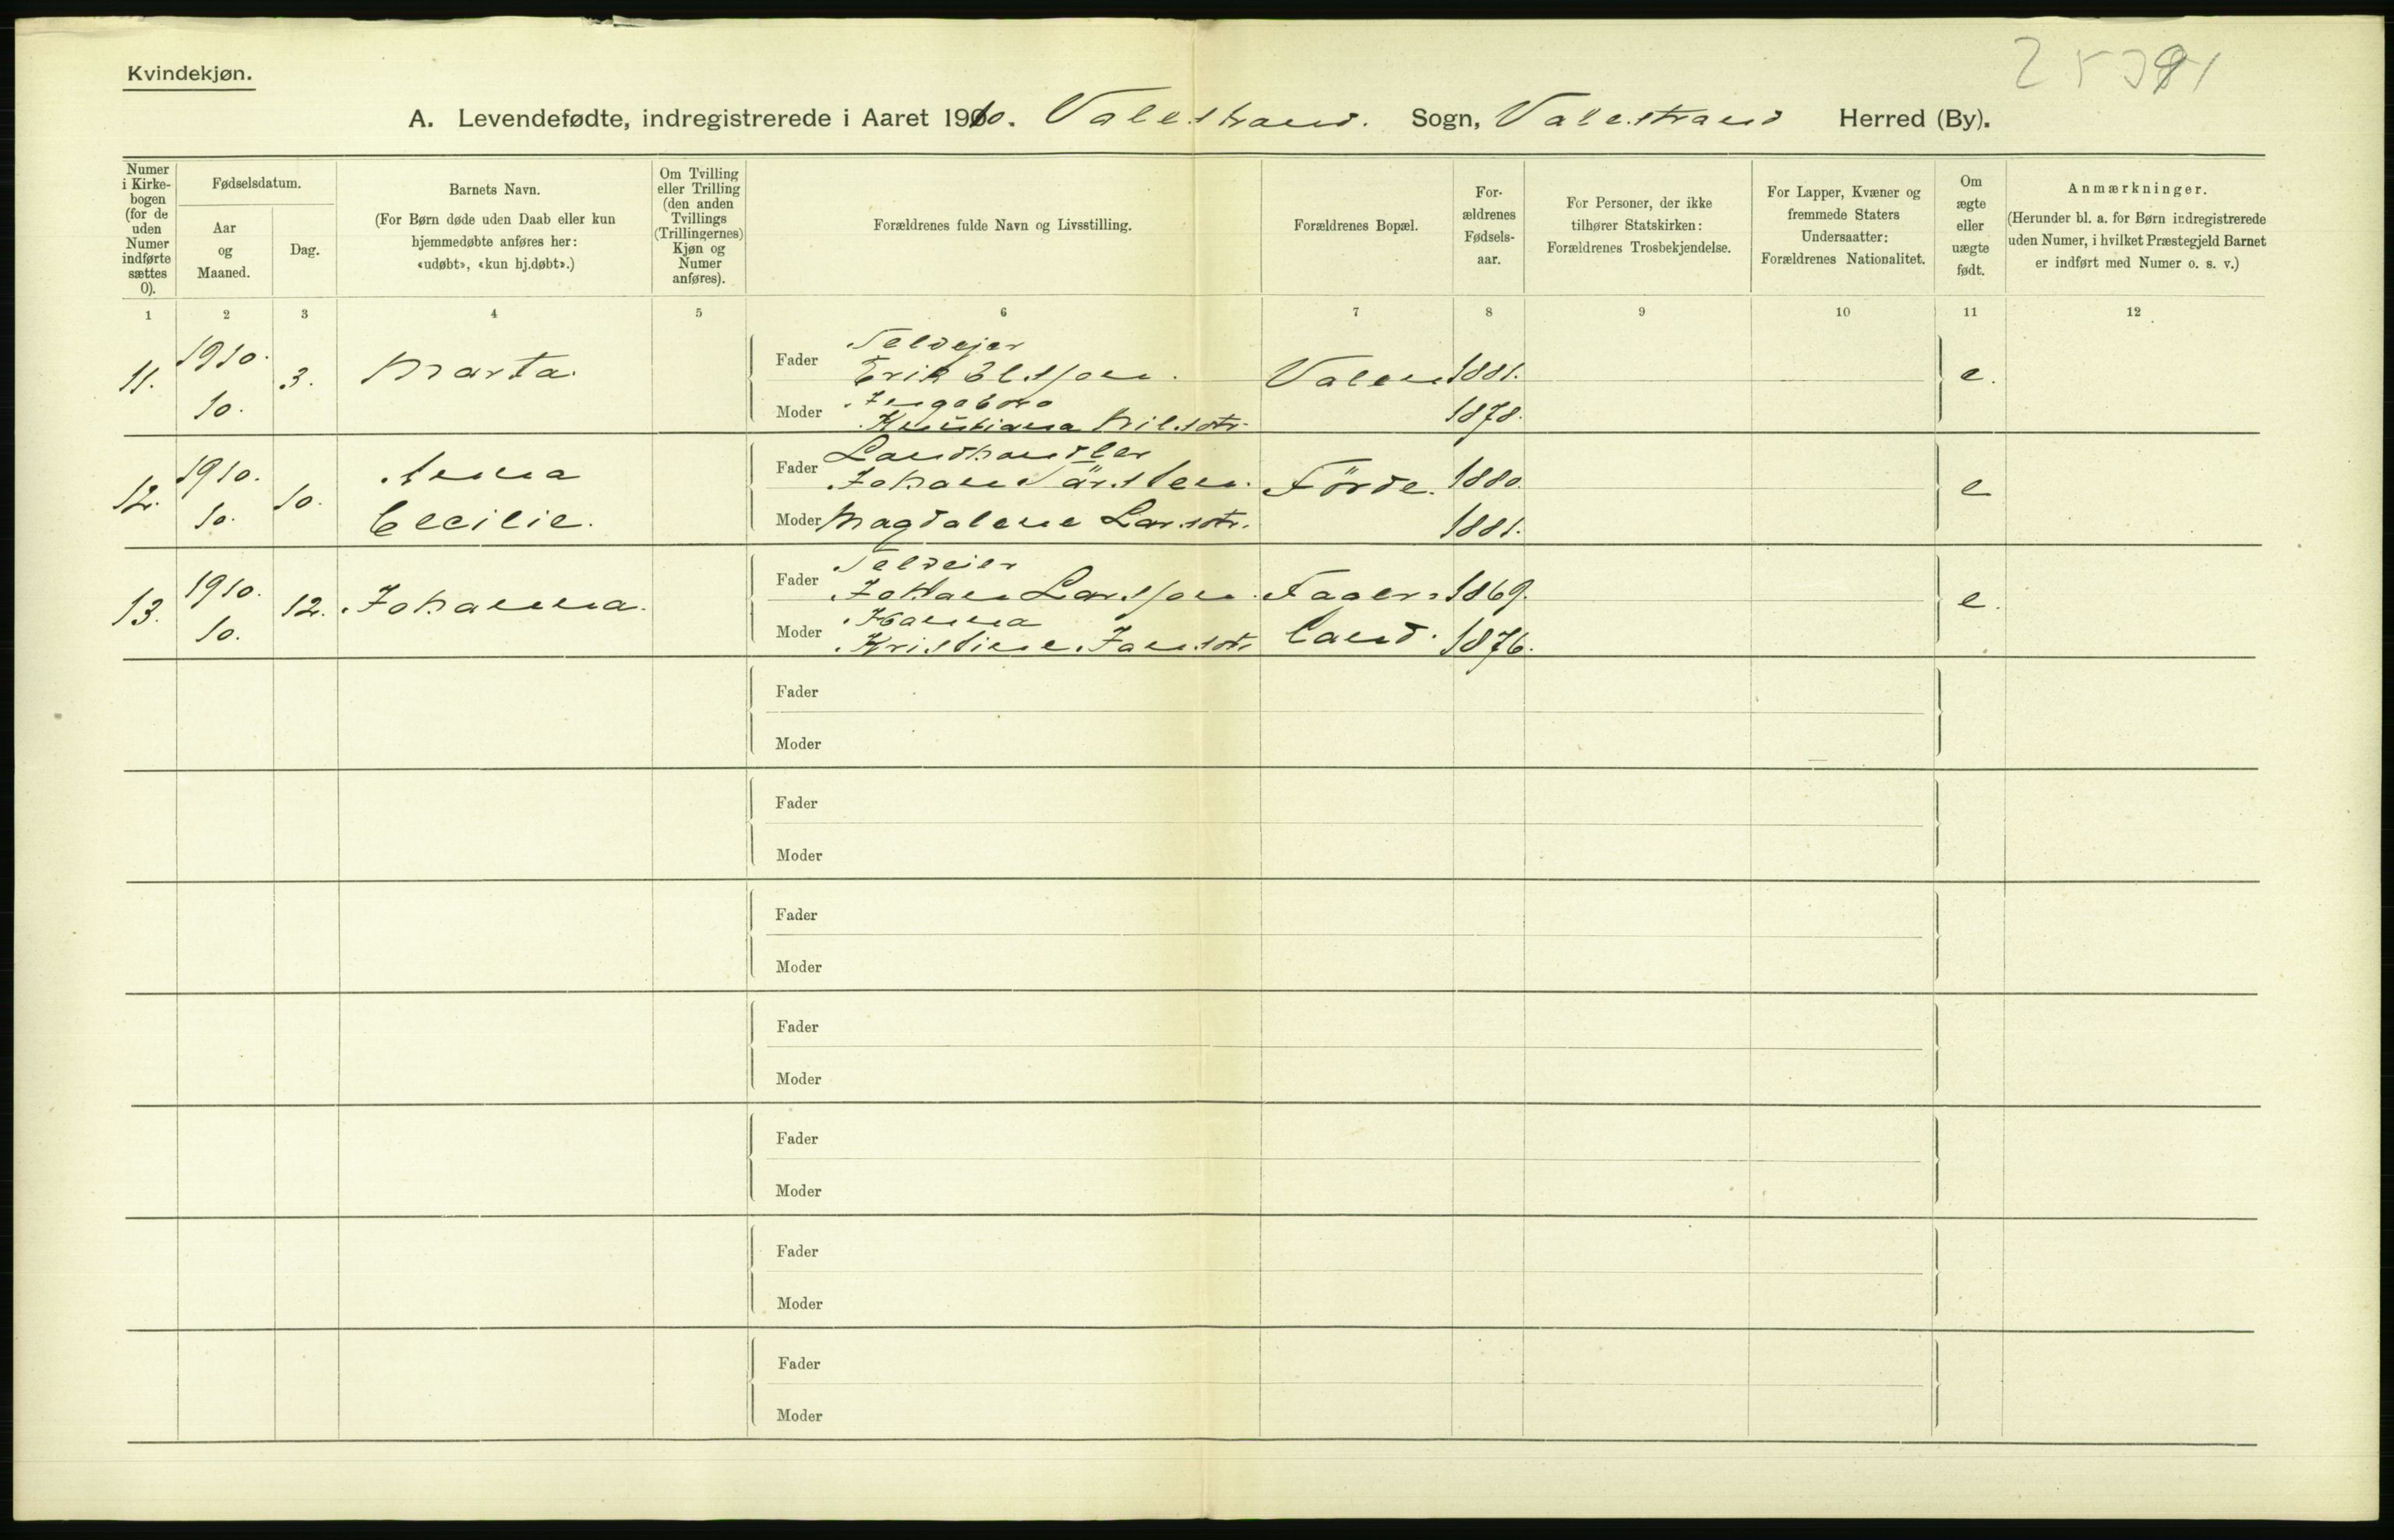 Kvindekjøn.
A. Levendefødte, indregistrerede i Aaret 1910. Valestrand. Sogn, Valestrand Herred (By).
Numer i Kirke-bogen (for de uden Numer indførte sættes 0).
Fødselsdatum.
Aar og Maaned.
Dag.
Barnets Navn.
(For Børn døde uden Daab eller kun hjemmedøbte anføres her: «udøbt», «kun hj.døbt».)
Om Tvilling eller Trilling (den anden Tvillings (Trillingernes) Kjøn og Numer anføres).
Forældrenes fulde Navn og Livsstilling.
Forældrenes Bopæl.
For-ældrenes Fødsels-aar.
For Personer, der ikke tilhører Statskirken: Forældrenes Trosbekjendelse.
For Lapper, Kvæner og fremmede Staters Undersaatter: Forældrenes Nationalitet.
Om ægte eller uægte født.
Anmærkninger.
(Herunder bl. a. for Børn indregistrerede uden Numer, i hvilket Præstegjeld Barnet er indført med Numer o. s. v.)
1 2 3 4 5 6 7 8 9 10 11 12
11. 1910. 10. 3. Marta.
Fader Selvejer Erik Valen 1881. e.
Moder Ingeborg Kristiana Nilsdtr. 1878.
12. 1910. 10. 10. Anna Cecilie.
Fader Landhandler Johan Førde. 1880. e
Moder Magdalene Larsdtr. 1881.
13. 1910. 10. 12. Johanna.
Fader Selveier Johan Larsson. Fager= 1869. e.
Moder Hanna Kristine Jansdtr. land. 1876.
Fader
Moder
Fader
Moder
Fader
Moder
Fader
Moder
Fader
Moder
Fader
Moder
Fader
Moder